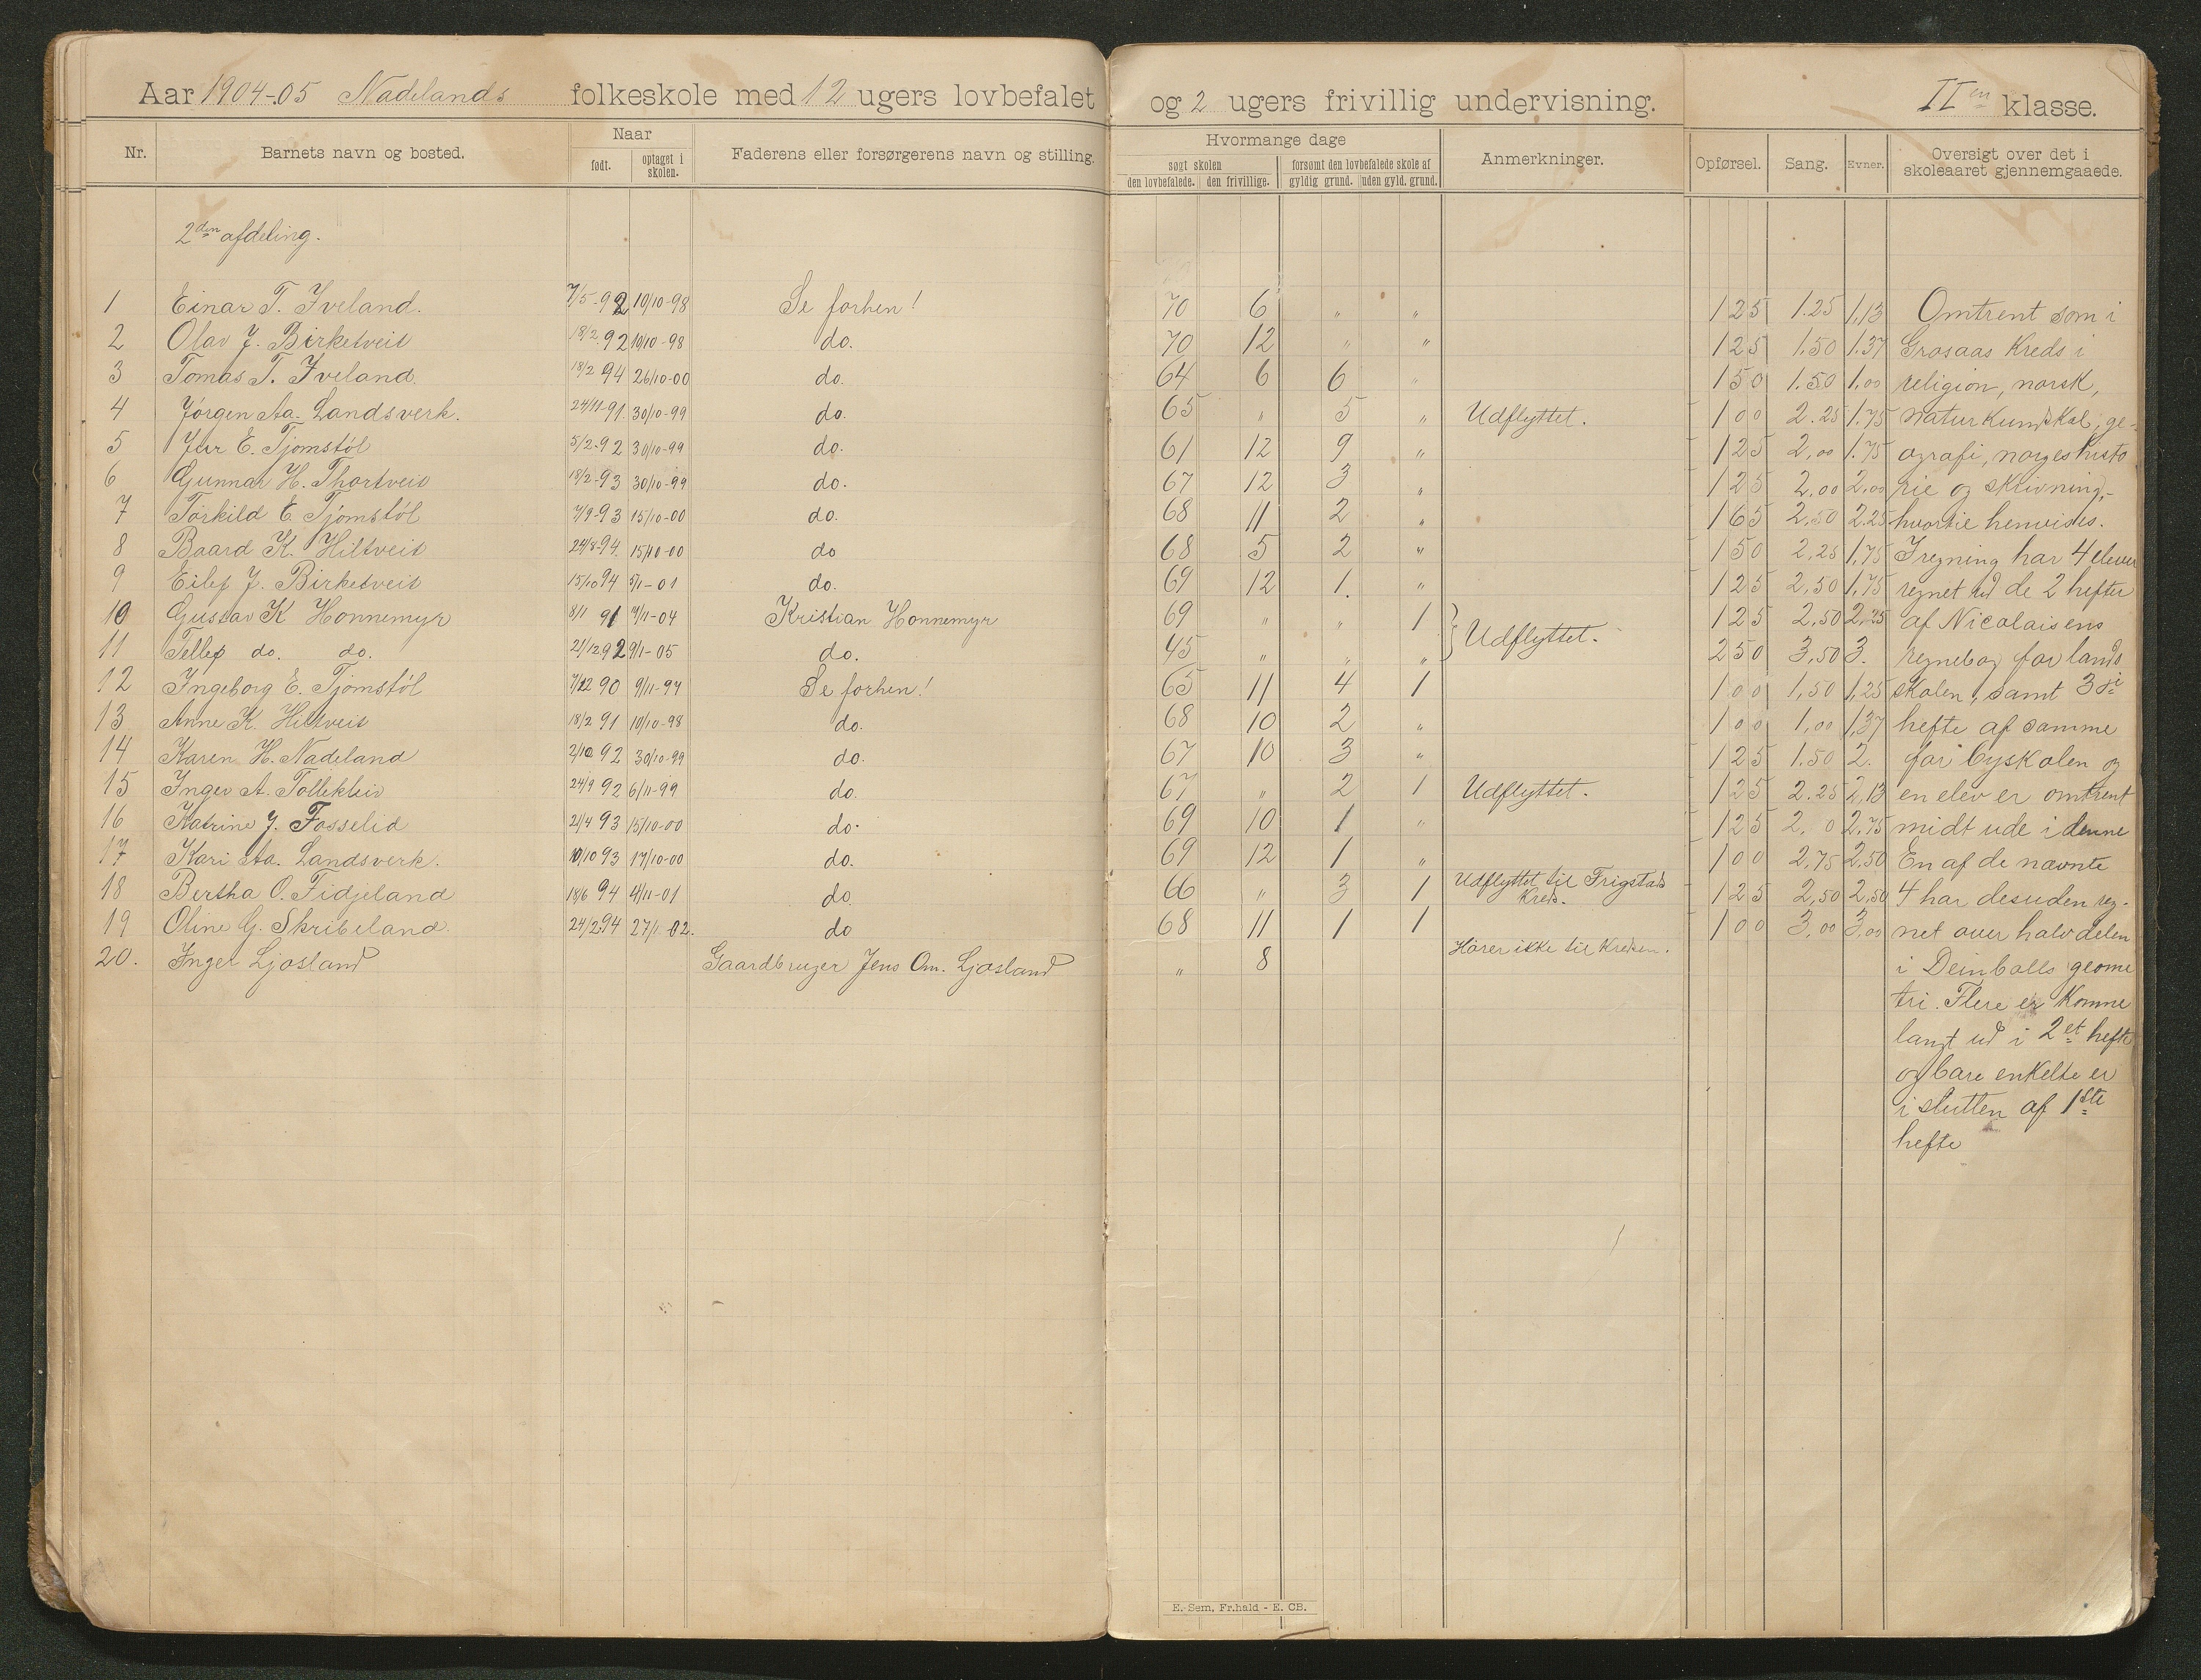 Aar 1904-05 Nadelands folkeskole med 12 ugers lovbefalet og 2 ugers frivillig undervisning. II en klasse.
Nr. Barnets navn og bosted. Naar født. optaget i skolen. Faderens eller forsørgerens navn og stilling. Hvormange dage søgt skolen den lovbefalede. den frivillige. forsømt den lovbefalede skole af gyldig grund. uden gyld. grund. Anmerkninger. Opførsel. Sang. Evner. Oversigt over det i skoleaaret gjennemgaaede.
2den afdeling.
1 Einar T. Iveland. 7/5-92 10/10-98 Se forhen! 70 6 " " 1 25 1.25 1,13 Omtrent som i
2 Olav J. Birketveit 18/2 92 10/10-98 do. 70 12 " " 1 25 1.50 1.37 Grosaas Kreds i
3 Tomas T. Iveland. 18/2 94 26/10-00 do. 64 6 6 " 1 50 1.50 1,00 religion, norsk,
4 Jørgen Aa. Landsverk. 24/11-91. 30/10-99 do. 65 " 5 " Udflyttet. 1 00 2.25 1.75 naturkundskab, ge-
5 E. Tjomstøl 5/2-92 30/10-99 do. 61 12 9 " 1 25 2,00 1.75 ografi, norgeshisto
6 Gunnar H. Thortveit 18/2-93 30/10-99 do. 67 12 3 " 1 25 2,00 2,00 rie og skrivning,-
7 Torkild E. Tjomstøl 7/9-93 15/10-00 do. 68 11 2 " 1 65 2,50 2.25 hvortil henvises.
8 Baard K. Hiltveit 24/8-94. 15/10-00 do 68 5 2 " 1 50 2,25 1,75 I regning har 4 elever
9 Eilef J. Birketveit 15/10 94 5/1-01 do. 69 12 1. " 1 25 2,50 1,75 regnet ud de 2 hefter
10 Gustav K Honnemyr 8/11 91 7/11-04 Kristian Honnemyr 69 " " 1 Udflyttet. 1 25 2,50 2,25 af Nicolaisens
11 Tellef do. do. 21/12 92 9/1-05 do. 45 " " " 2 50 3,50 3. regnebog for lands
12 Ingeborg E. Tjomstøl 7/12 90 9/11-97 Se forhen! 65 11 4 1 1 00 1,50 1,25 skolen, samt 3di
13. Anne K. Hiltveit 18/2 91 10/10-98 do. 68 10 2 " 1 00 1,00 1,37 hefte af samme
14 Karen H. Nadeland 2/10 92 30/10-99 do. 67 10 3 " 1 25 1.50 2. for byskolen og
15 A. 24/9 92 6/11-99 do. 67 " 2 1 Udflyttet. 1 25 2.25 2,13 en elev er omtrent
16 Katrine J. Fosselid 21/4 93 15/10-00 do. 69 10 1 " 1 25 2. 0 2,75 midt ude i denne
17 Kari Aa. Landsverk. 10/10 93 17/10-00 do. 69 12 1 " 1 00 2,75 2,50 En af de nævnte
18 Bertha O. Fidjeland 18/6 94 4/11-01 do. 66 " 3 1 Udflyttet til Frigstads Kreds. 1 25 2,50 2,50 4 har desuden reg-
19 Oline G. Skribeland. 24/2.94 27/1-02. do 68 11 1 1 1 00 3,00 3,00 net over halvdelen
20. Inger Ljosland Gaardbruger Jens Om. Ljosland " 8 Hører ikke til Kredsen. i Deinbolls geome
tri. Flere er komne
langt ud i 2et hefte
og bare enkelte er
i slutten af 1ste
hefte
E. Sem, Fr.hald - E. CB.